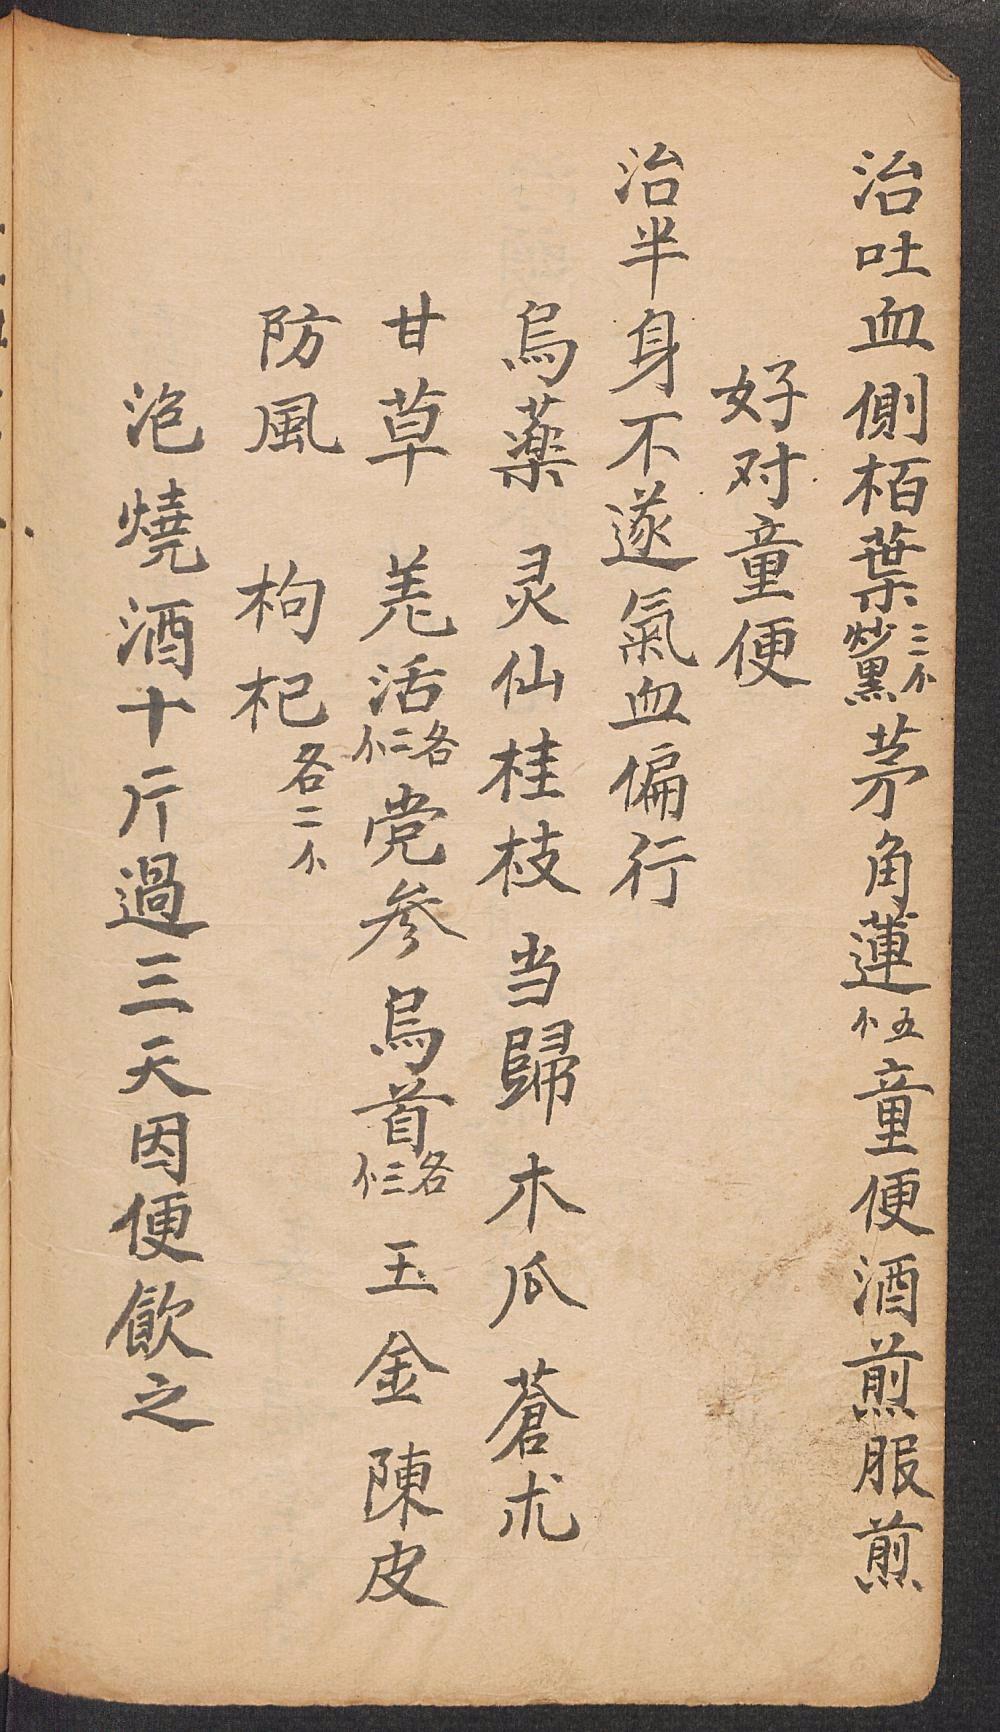 治吐血側栢葉三个炒黑茅角蓮五个童便酒煎服煎
好对童便
治半身不遂氣血偏行
烏藥 灵仙桂枝 当歸 木瓜 蒼朮
甘草 羌活各二个党参 烏首各三个 玉金 陳皮
防風 枸杞各二个
泡燒酒十斤過三天因便飲之